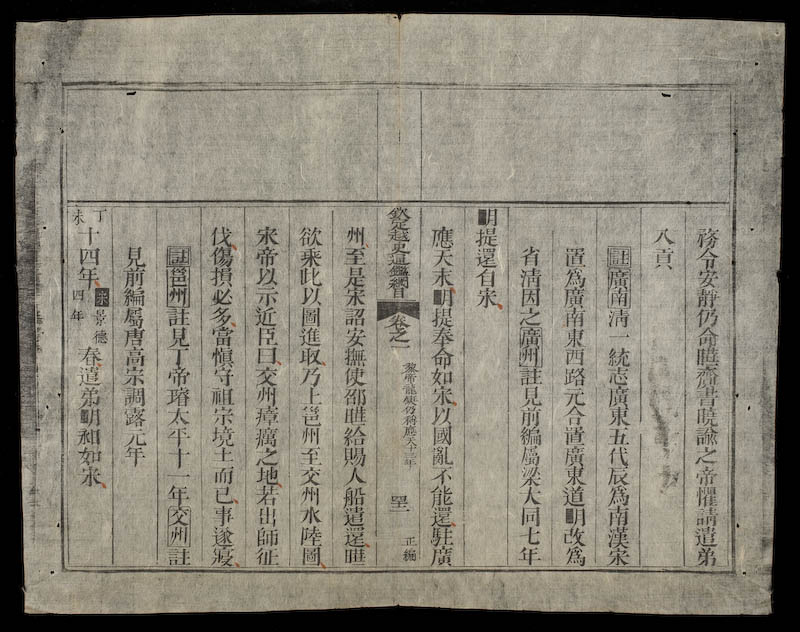 務令安靜仍命曄齎書曉諭之帝懼請遣弟
入貢
註廣南清一統志廣東五代辰爲南漢宋
置爲廣南東西路元合置廣東道明改爲
省清因之廣州註見前編屬梁大同七年
明提還自宋
應天末明提奉命如宋以國亂不能還駐廣
欽定越史通鑑綱目 卷之一 黎帝龍鋌仍稱應天十三年 正編
州至是宋詔安撫使邵曄給賜人船遣還曄
欲乘此以圖進取乃上邕州至交州水陸圖
宋帝以示近臣曰交州瘴癘之地若出師征
伐傷損必多當慎守祖宗境土而已事遂寢
註邕州註見丁帝璿太平十一年交州註
見前編屬唐高宗調露元年
丁未十四年宋景德四年春遣弟明昶如宋